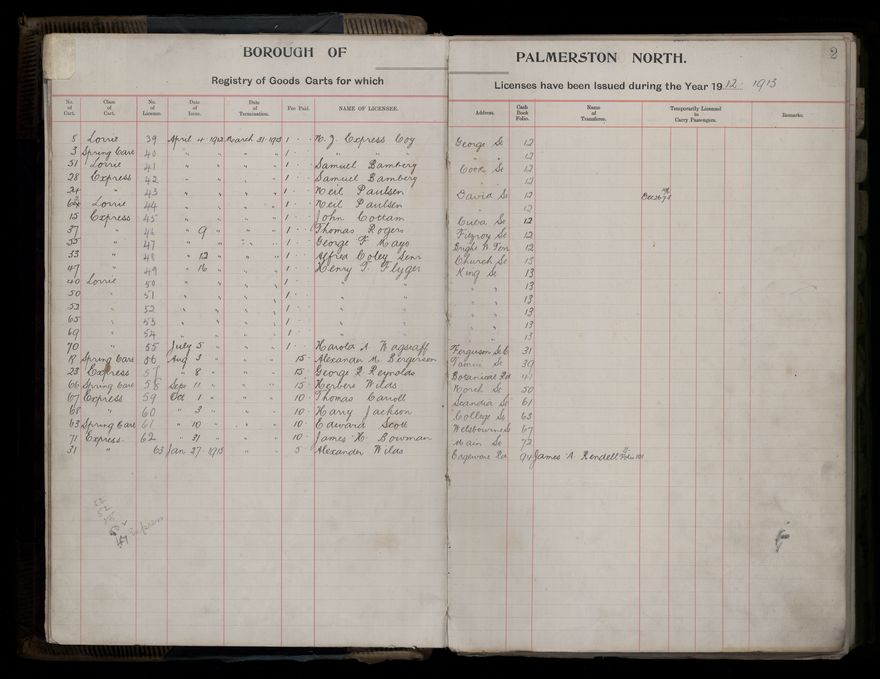 BOROUGH OF PALMERSTON NORTH. 2
Registry of Goods Carts for which Licenses have been Issued during the Year 1912. 1913
No. of Cart. Class of Cart. No. of License. Date of Issue. Date of Termination. Fee Paid. NAME OF LICENSEE. Address. Cash Book Folio. Name of Transferee. Temporarily Licensed to Carry Passengers. Remarks.
8 Lorrie 39 April 4 1912 March 31 1913 1 - - N. Z. Express Coy George St 12
3 Spring Cart 40 " " " " 1 - - " " " " 12
51 Lorrie 41 " " " " 1 - - Samuel Bamberg Cook St 12
28 Express 42 " " " " 1 - - Samuel Bamberg " " 12
24 " 43 " " " " 1 - - Neil Paulsen David St 12
64 Lorrie 44 " " " " 1 - - Neil Paulsen " 12
15 Express 45 " " " " 1 - - John Cottam Cuba St 12
37 " 46 " 9 " " " 1 - - Thomas Rogers Fitzroy St 12
35 " 47 " " " " 1 - - George F Mayo 12
33 " 48 " 12 " " " 1 - - Alfred Coley Senr Church St 13
47 " 49 " 16 " " " 1 - - Henry T. Flyger King St 13
40 Lorrie 50 " " " " 1 - - " " " " 13
50 " 51 " " " " 1 - - " " " " 13
52 " 52 " " " " 1 - - " " " " 13
65 " 53 " " " " 1 - - " " " " 13
69 " 54 " " " " 1 - - " " " " 13
70 " 55 July 5 " " " 1 - - Harold A Wagstaff Ferguson St 31
19 Spring Cart 56 Aug 3 " " " 15 - Alexander M. Bergerson 39
23 Express 57 " 8 " " " 15 - George R Reynolds Botanical Rd 41
66 Spring Cart 58 Sept 11 " " " 15 - Herbert Wilds North St 50
67 Express 59 Oct 1 " " " 10 - Thomas Carroll Scandia St 61
68 " 60 " 3 " " " 10 - Harry Jackson College St 63
63 Spring Cart 61 " 10 " " " 10 - Edward Scott Melbourne St 67
71 Express 62 " 31 " " " 10 - James H. Bowman Main St 72
31 " 63 Jan 27 1913 " " 5 - Alexander Wilds Edgeware Rd 94 James A. Rendell
Express